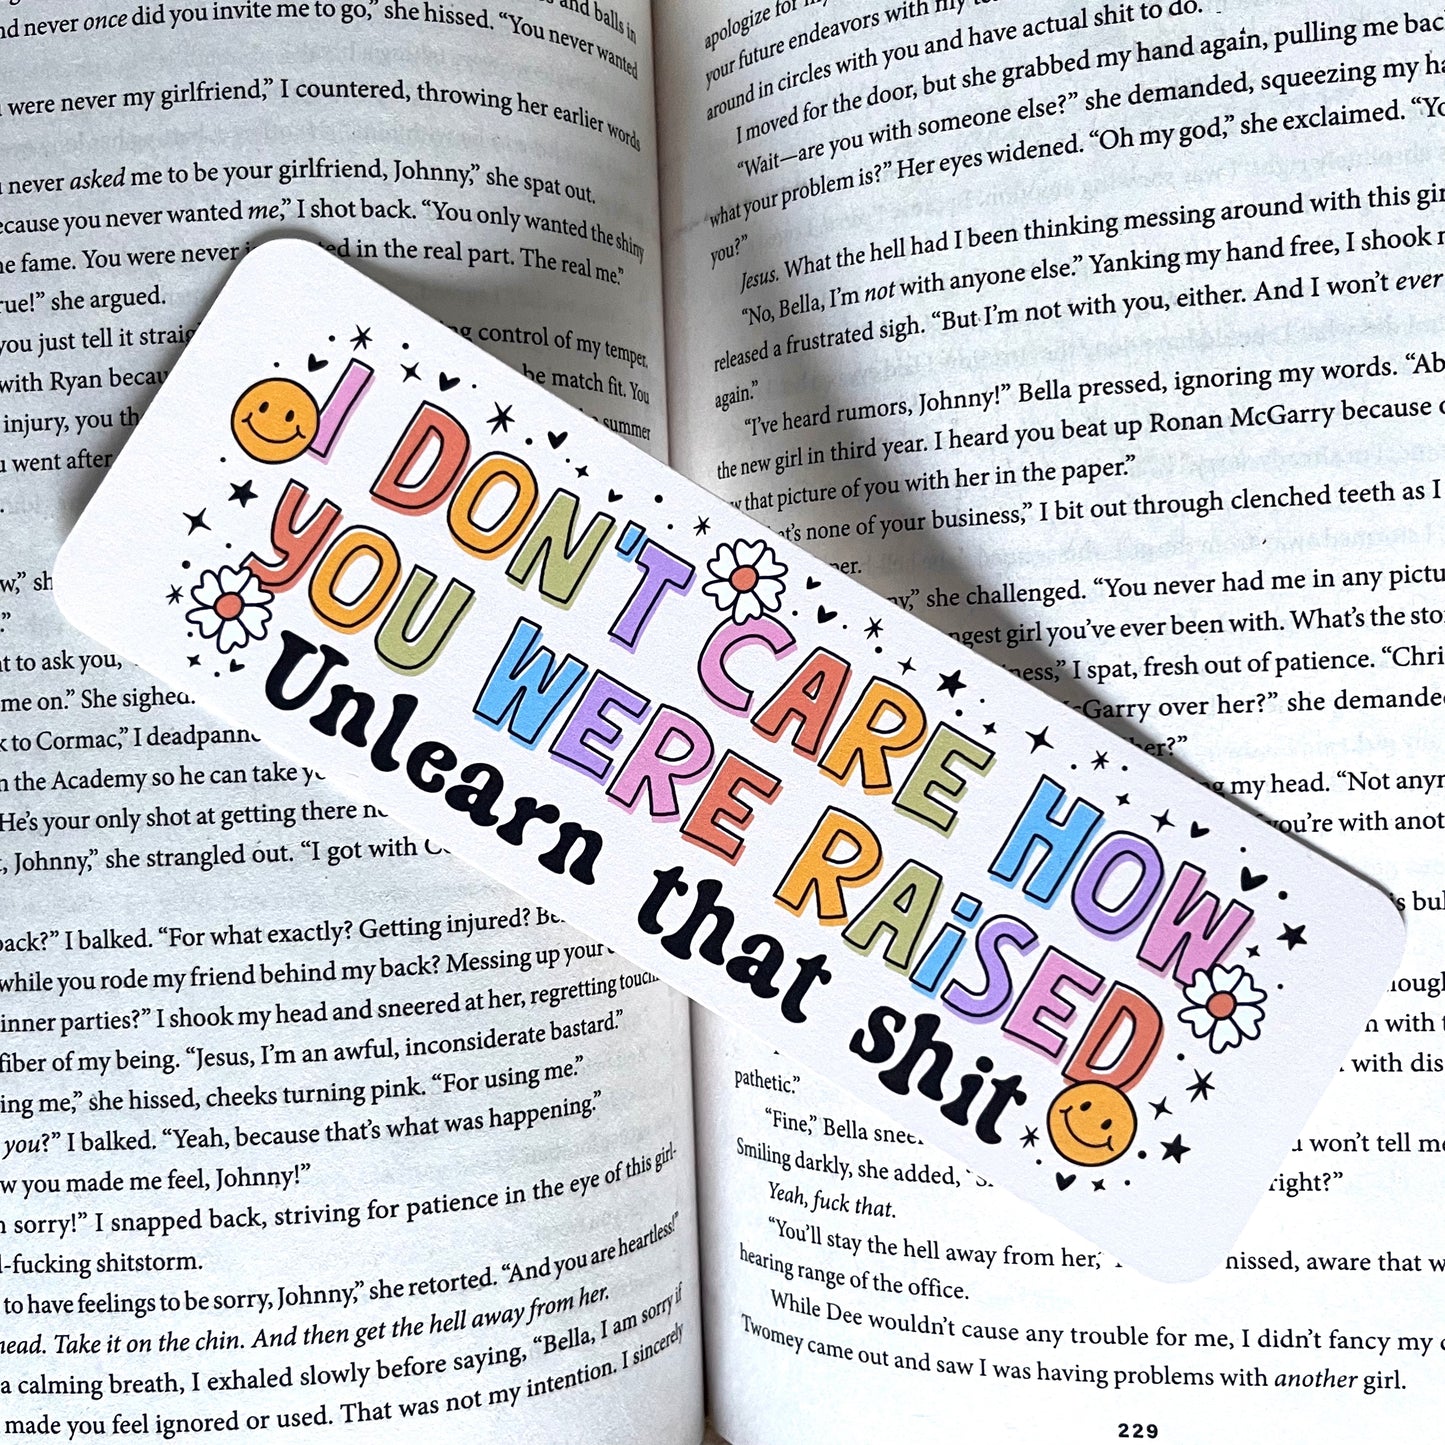 nd never once did you invite me to go,” she hissed. “You never wanted
and balls in
were never my girlfriend,” I countered, throwing her earlier words
never asked me to be your girlfriend, Johnny,” she spat out.
ecause you never wanted me,” I shot back. “You only wanted the shiny
e fame. You were never in the real part. The real me.”
rue!” she argued.
you just tell it control of my temper.
with Ryan be match fit. You
injury, you summer
went after
I DON'T CARE HOW
YOU WERE RAiSED
Unlearn that shit
to ask you,
me on.” She sighed.
to Cormac,” I
n the Academy so he can take
He’s your only shot at getting there
, Johnny,” she strangled out. “I got with
back?” I balked. “For what exactly? Getting injured?
while you rode my friend behind my back? Messing up your
inner parties?” I shook my head and sneered at her, regretting
fiber of my being. “Jesus, I’m an awful, inconsiderate bastard.”
ing me,” she hissed, cheeks turning pink. “For using me.”
you?” I balked. “Yeah, because that’s what was happening.”
w you made me feel, Johnny!”
sorry!” I snapped back, striving for patience in the eye of this girl-
-fucking shitstorm.
to have feelings to be sorry, Johnny,” she retorted. “And you are heartless!”
head. Take it on the chin. And then get the hell away from her.
a calming breath, I exhaled slowly before saying, “Bella, I am sorry if
made you feel ignored or used. That was not my intention. I sincerely
apologize for
your future endeavors with
around in circles with you and have actual shit to do.
I moved for the door, but she grabbed my hand again, pulling me bac
“Wait—are you with someone else?” she demanded, squeezing my ha
what your problem is?” Her eyes widened. “Oh my god,” she exclaimed. “Yo
you?”
Jesus. What the hell had I been thinking messing around with this gir
“No, Bella, I’m not with anyone else.” Yanking my hand free, I shook
released a frustrated sigh. “But I’m not with you, either. And I won’t ever
again.”
“I’ve heard rumors, Johnny!” Bella pressed, ignoring my words. “Ab
the new girl in third year. I heard you beat up Ronan McGarry because
that picture of you with her in the paper.”
none of your business,” I bit out through clenched teeth as I
she challenged. “You never had me in any pictu
girl you’ve ever been with. What’s the sto
I spat, fresh out of patience. “Chri
Garry over her?” she demande
her?”
my head. “Not anym
you’re with anot
with
with dis
pathetic.”
“Fine,” Bella
won’t tell me
Smiling darkly, she added,
right?”
Yeah, fuck that.
“You’ll stay the hell away from her,” hissed, aware that w
hearing range of the office.
While Dee wouldn’t cause any trouble for me, I didn’t fancy my
Twomey came out and saw I was having problems with another girl.
229